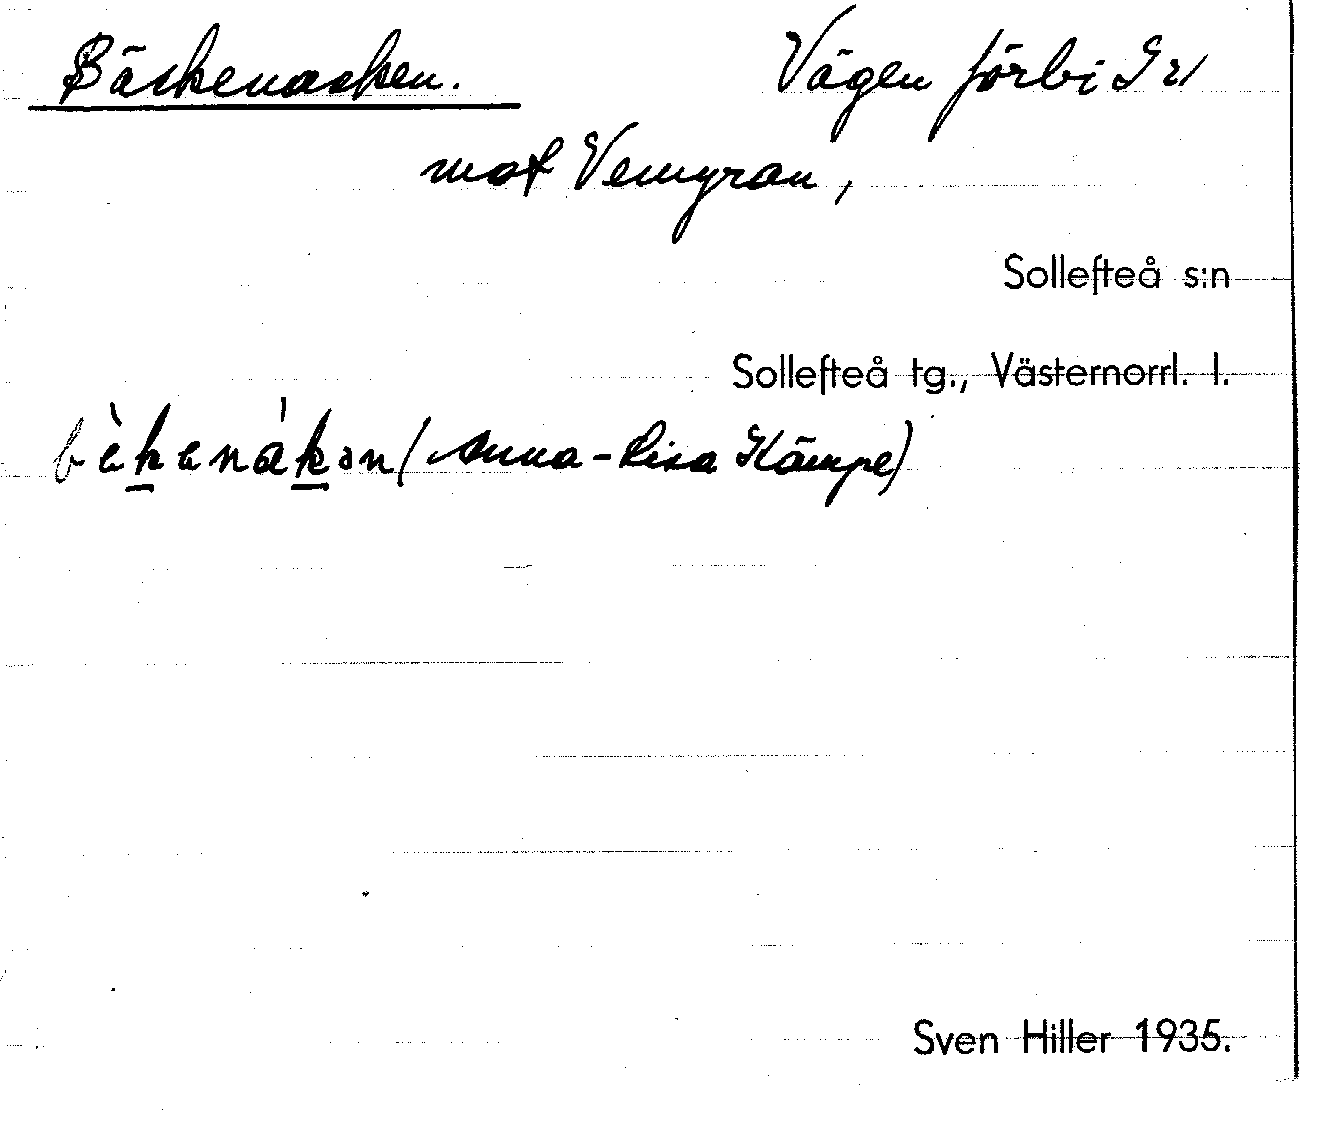 Bäckenacken. Vägen förbi I 21
mot Vemyran,
Sollefteå s:n
Sollefteå tg., Västernorrl. l.
bèkenákən (Anna-Lisa Kämpe)
Sven Hiller 1935.